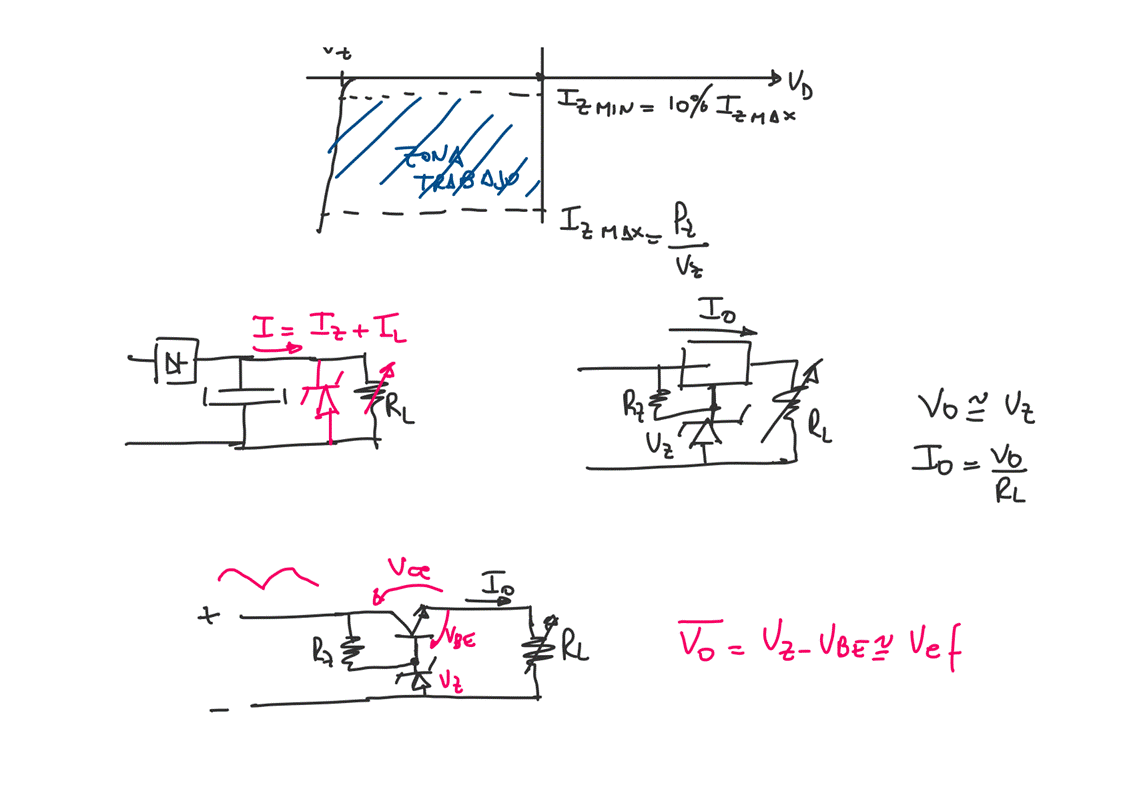 Vz
VD
IZ MIN = 10% IZ MAX
ZONA
TRABAJO
IZ MAX = Pz
Vz
I = IZ + IL
RL
IO
Rz
Vz
RL
VO ≅ Vz
IO = VO
RL
+
VCE
IO
VBE
Rz
Vz
RL
−
VO = VZ - VBE ≅ Vef